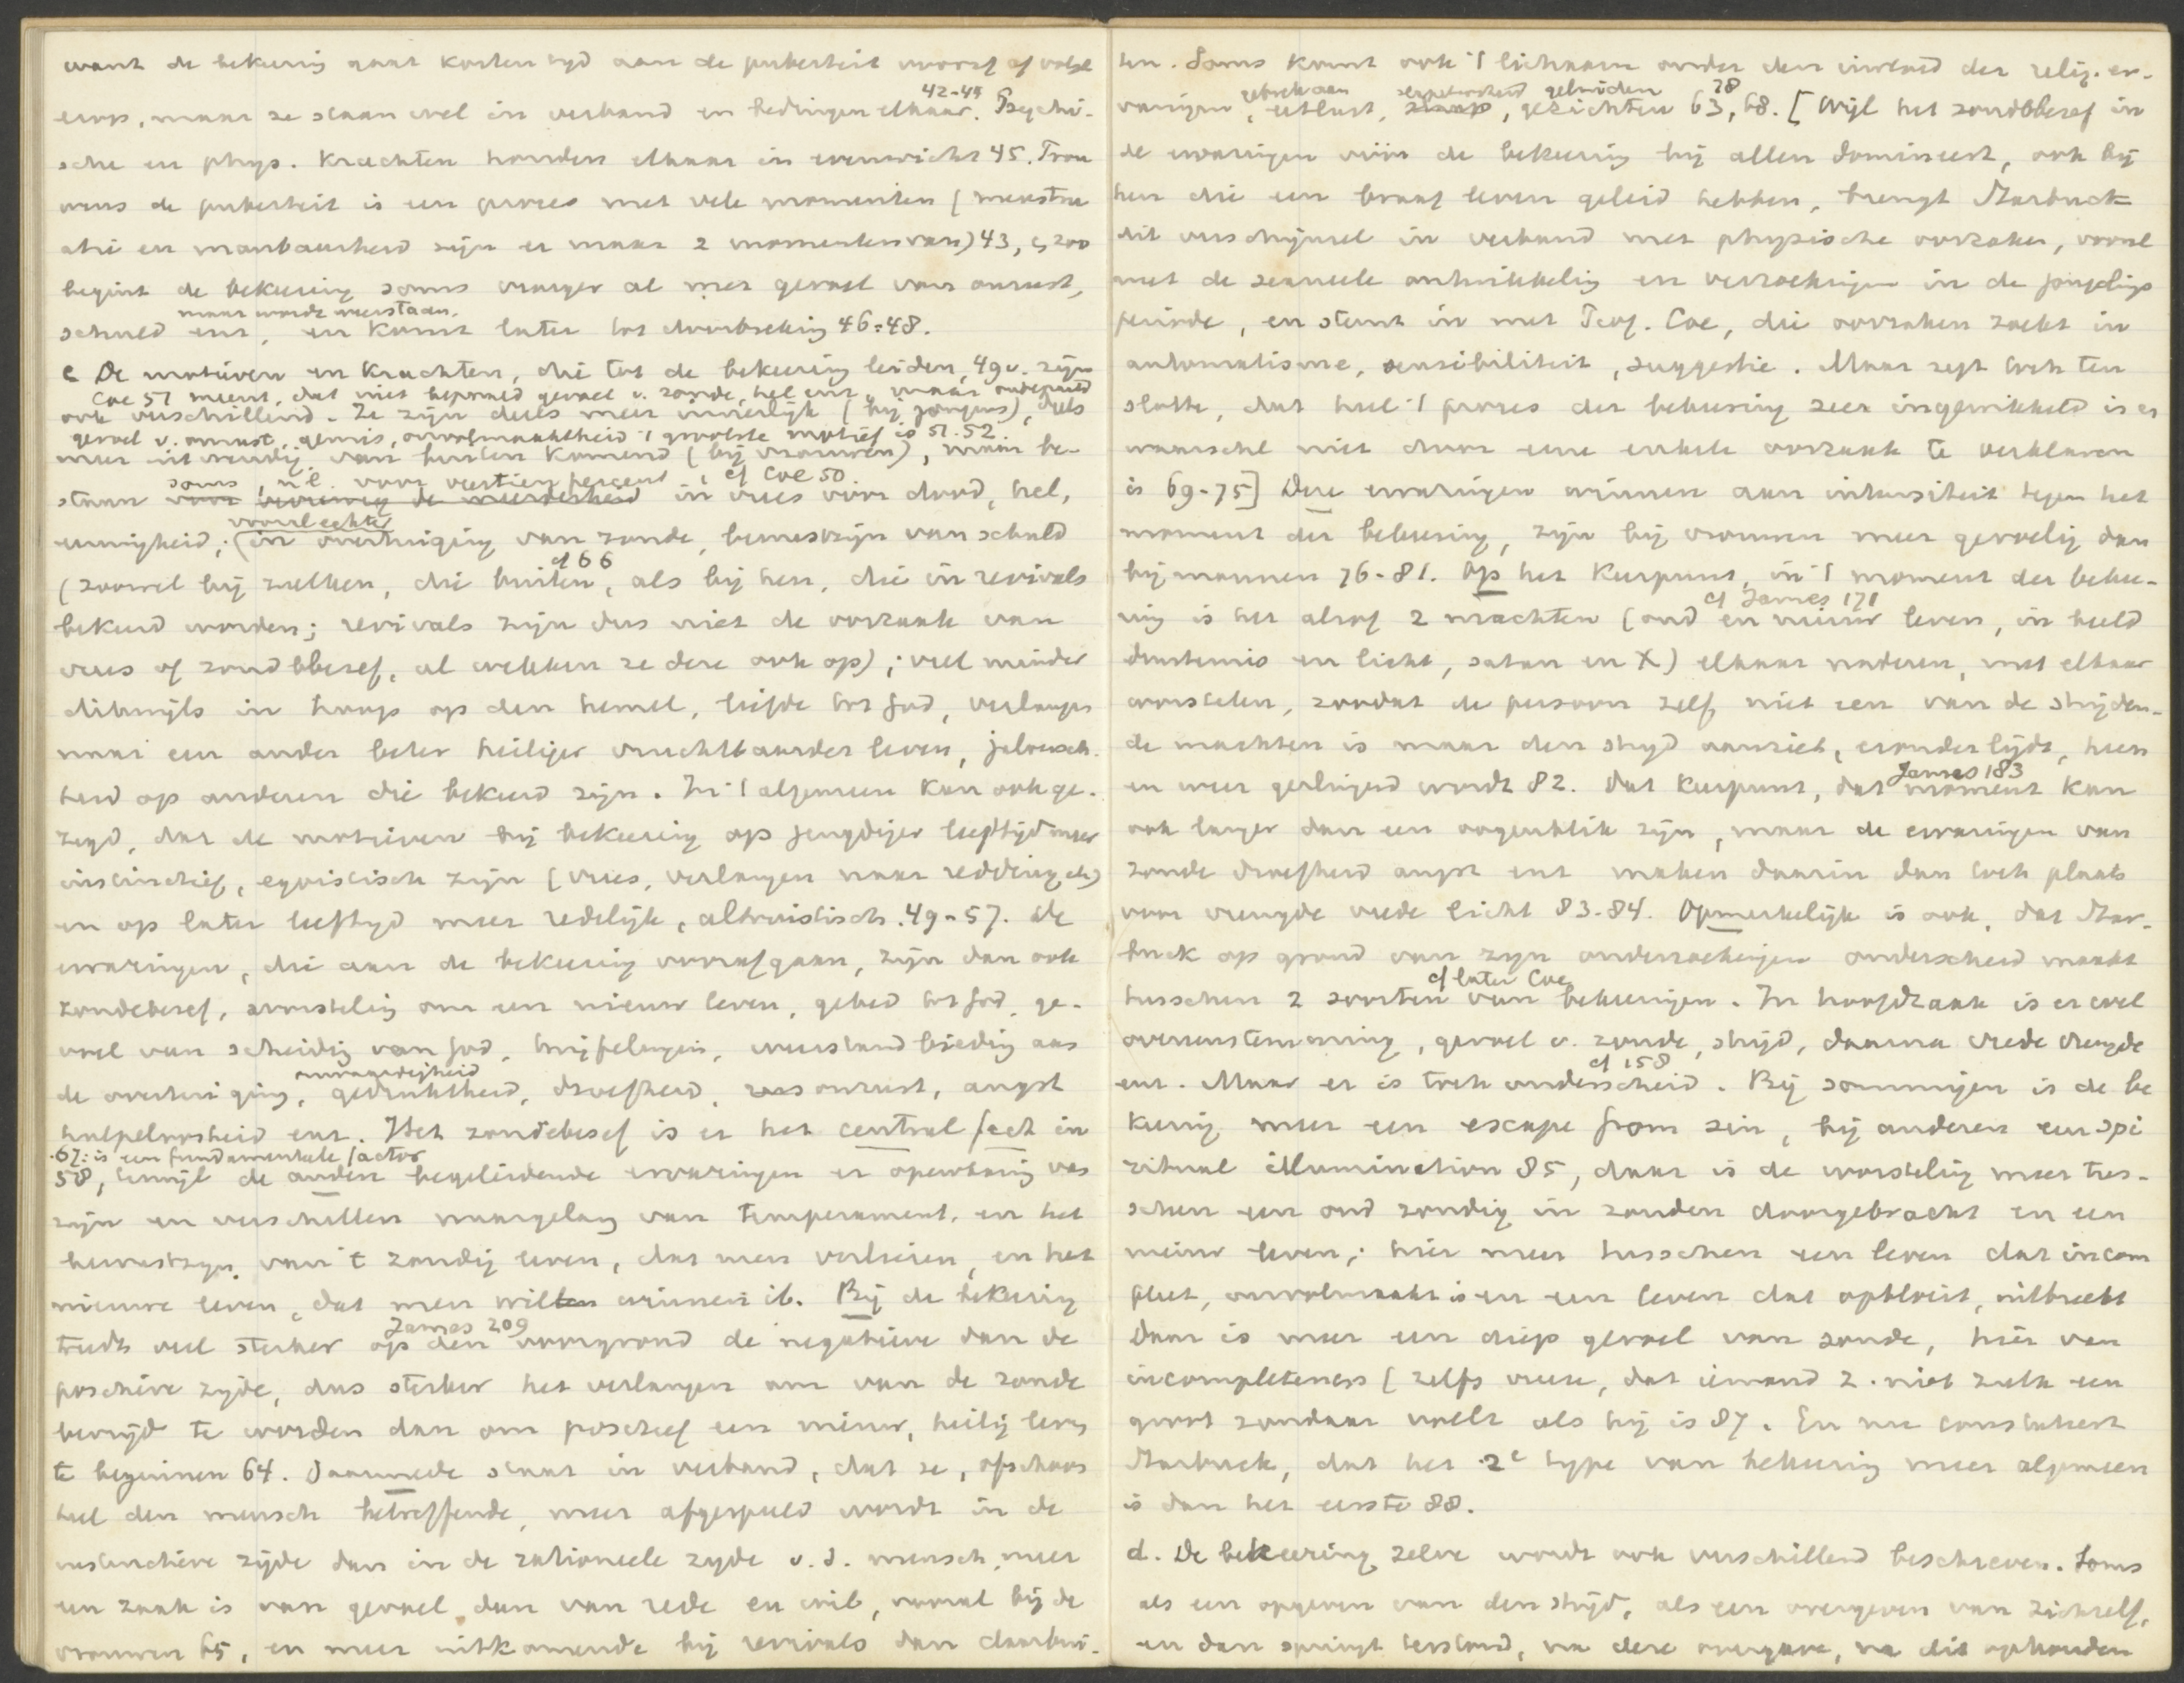 want de bekeering gaat korten tijd aan de puberteit vooraf of volgt
erop, maar ze staan wel in verband en bedingen elkaar. 42-45 Psychi-
sche en phys. krachten houden elkaar in evenwicht 45. Trou
wens de puberteit is een proces met vele momenten (menstru
atie en manbaarheid zijn er maar 2 momenten van) 43, zoo
begint de bekeering soms vroeger al met gevoel van onrust,
maar wordt weerstaan.
schuld enz, en komt later tot doorbreking 46-48.
c De motieven en krachten, die tot de bekeering leiden, 49v. zijn
Coe 57 meent, dat niet bepaald gevoel v. zonde, hel enz, maar
ook verschillend. Ze zijn deels meer innerlijk (bij jongens), deels
gevoel v. onrust, gemis, onvolmaaktheid 't grootste motief is 51.52
meer uitwendig van buiten komend (bij vrouwen), maar be-
soms, nl. voor veertien percent, cf Coe 50.
staan in vrees voor dood, hel,
vooral echter
eeuwigheid; (in overtuiging van zonde, bewustzijn van schuld
cf 66
(zoowel bij zulken, die buiten, als bij hen, die in revivals
bekeerd worden; revivals zijn dus niet de oorzaak van
vrees of zondbesef, al wekken ze deze ook op); veel minder
dikwijls in hoop op den hemel, liefde tot God, verlangen
naar een ander beter heiliger vruchtbaarder leven, jaloersch
heid op anderen die bekeerd zijn. In 't algemeen kan ook ge-
zegd, dat de motieven bij bekeering op jeugdiger leeftijd meer
instinctief, egoistisch zijn (vrees, verlangen naar redding etc)
en op later leeftijd meer redelijk, altruistisch. 49-57. De
ervaringen, die aan de bekeering voorafgaan, zijn dan ook
zondebesef, worsteling om een nieuw leven, gebed tot God, ge-
voel van scheiding van God, twijfelingen, weerstand bieding aan
onwaardigheid
de overtuiging, gedruktheid, droefheid, onrust, angst
hulpeloosheid enz. Het zondebesef is er het central fact in
.67: is een fundamentale factor
58, terwijl de andere begeleidende ervaringen er openbaring van
zijn en verschillen naargelang van temperament, en het
bewustzijn van 't zondig leven, dat men verliezen, en het
nieuwe leven, dat men wil winnen ib. Bij de bekeering
James 209
treedt veel sterker op den voorgrond de negatieve dan de
positieve zijde, dus sterker het verlangen om van de zonde
bevrijd te worden dan om positief een nieuw, heilig leven
te beginnen 64. Daarmede staat in verband, dat ze, ofschoon
heel den mensch betreffende, meer afgespeeld wordt in de
instinctieve zijde dan in de rationeele zyde v.d. mensch, meer
een zaak is van gevoel dan van rede en wil, vooral bij de
vrouwen 65, en meer uitkomende bij revivals dan daarbui-
ten. Soms komt ook 't lichaam onder den invloed der relig. er-
gebrek aan geluiden 78
varingen, eetlust, slaap, gezichten 63, 68. [Wijl het zondbesef in
de ervaringen vóór de bekeering bij allen domineert, ook bij
hen die een braaf leven geleid hebben, brengt Starbuck
dit verschijnsel in verband met physische oorzaken, vooral
met de sexueele ontwikkeling en verzoekingen in de jongelings
periode, en stemt in met Prof. Coe, die oorzaken zoekt in
automatisme, sensibiliteit, suggestie. Maar zegt toch ten
slotte, dat heel 't proces der bekeering zeer ingewikkeld is en
waarschl niet door eene enkele oorzaak te verklaren
is 69-75] Deze ervaringen winnen aan intensiteit tegen het
moment der bekeering, zijn bij vrouwen meer gevoelig dan
bij mannen 76-81. Op het keerpunt, in 't moment der bekee-
cf James 171
ring is het alsof 2 machten (oud en nieuw leven, in beeld
duisternis en licht, satan en X) elkaar naderen, met elkaar
worstelen, zoodat de persoon zelf niet een van de strijden-
de machten is maar den strijd aanziet, eronder lijdt, heen
James 183
en weer geslingerd wordt 82. Dat keerpunt, dat moment kan
ook langer dan een oogenblik zijn, maar de ervaringen van
zonde droefheid angst enz maken daarin dan toch plaats
voor vreugde vrede licht 83-84. Opmerkelijk is ook, dat Star-
buck op grond van zijn onderzoekingen onderscheid maakt
cf later Coe
tusschen 2 soorten van bekeeringen. In hoofdzaak is er wel
overeenstemming, gevoel v. zonde, strijd, daarna vrede vreugde
cf 158
enz. Maar er is toch onderscheid. Bij sommigen is de be
keering meer een escape from sin, bij anderen een spi
ritual illumination 85, daar is de worsteling meer tus-
schen een oud zondig in zonden doorgebracht en een
nieuw leven; hier meer tusschen een leven dat incom
pleet, onvolmaakt is en een leven dat opbloeit, uitbreekt
Daar is meer een diep gevoel van zonde, hier van
incompleteness (zelfs vrees, dat iemand z. niet zulk een
groot zondaar voelt als hij is 87. En nu constateert
Starbuck, dat het 2e type van bekeering meer algemeen
is dan het eerste 88.
d. De bekeering zelve wordt ook verschillend beschreven. Soms
als een opgeven van den strijd, als een overgeven van zichzelf,
en dan springt terstond, na deze overgave, na dit ophouden